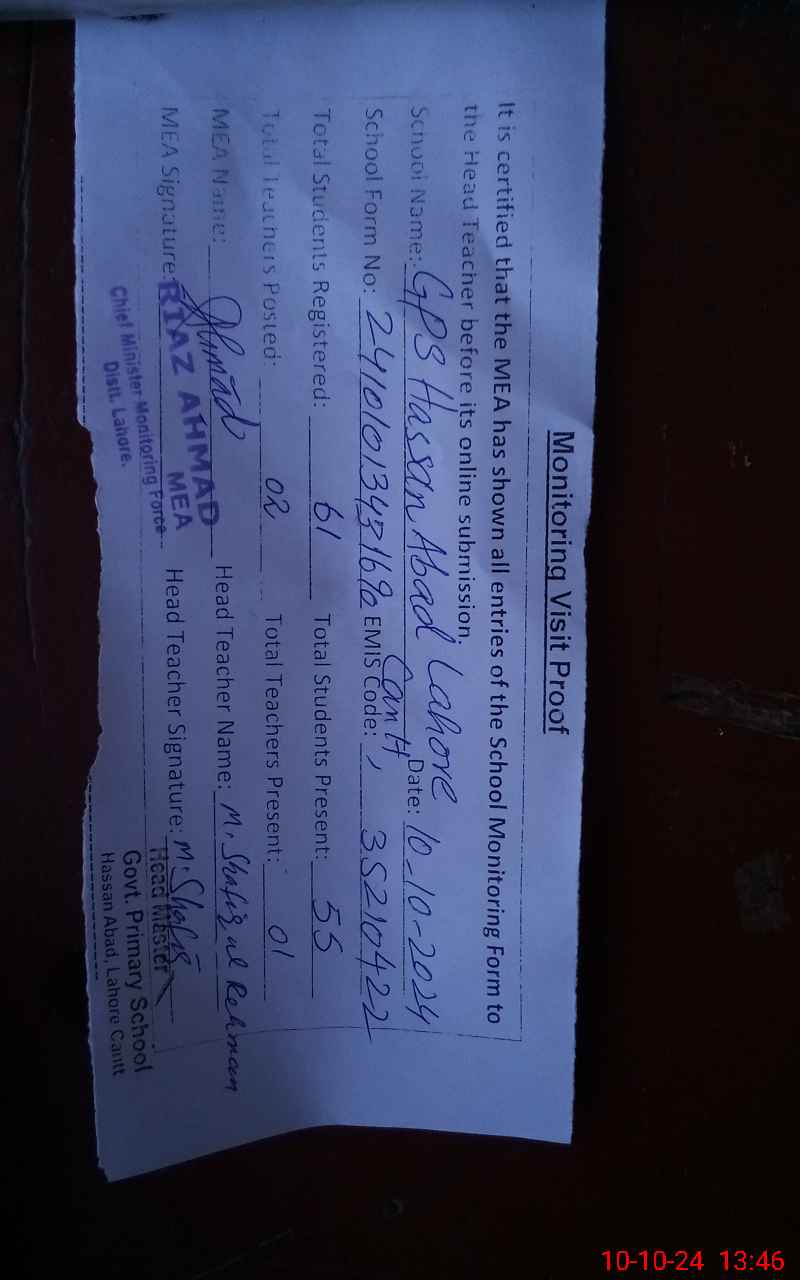 Monitoring Visit Proof
It is certified that the MEA has shown all entries of the School Monitoring Form to
the Head Teacher before its online submission.
School Name: GPS Hassan Abad Lahore Cantt, Date: 10-10-2024
School Form No: EMIS Code: 35210422
Total Students Registered: 61 Total Students Present: 55
Total Teachers Posted: 02 Total Teachers Present: 01
MEA Name: Ahmad Head Teacher Name: M. Shafiq ul Rehman
MEA Signature: Head Teacher Signature: M. Shafiq
RIAZ AHMAD
MEA
Chief Minister Monitoring Force
Distt. Lahore.
Head Master
Govt. Primary School
Hassan Abad, Lahore Cantt
10-10-24 13:46